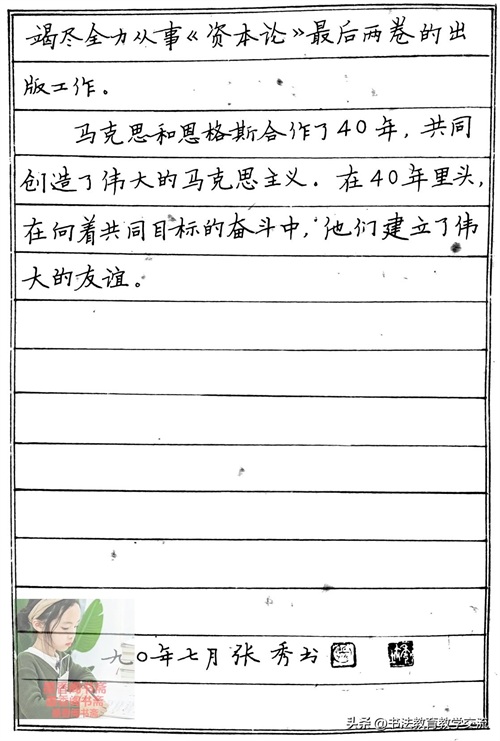 竭尽全力从事《资本论》最后两卷的出
版工作。
马克思和恩格斯合作了40年，共同
创造了伟大的马克思主义．在40年里头，
在向着共同目标的奋斗中，他们建立了伟
大的友谊。
九〇年七月张秀书
头条@书法教育教学交流